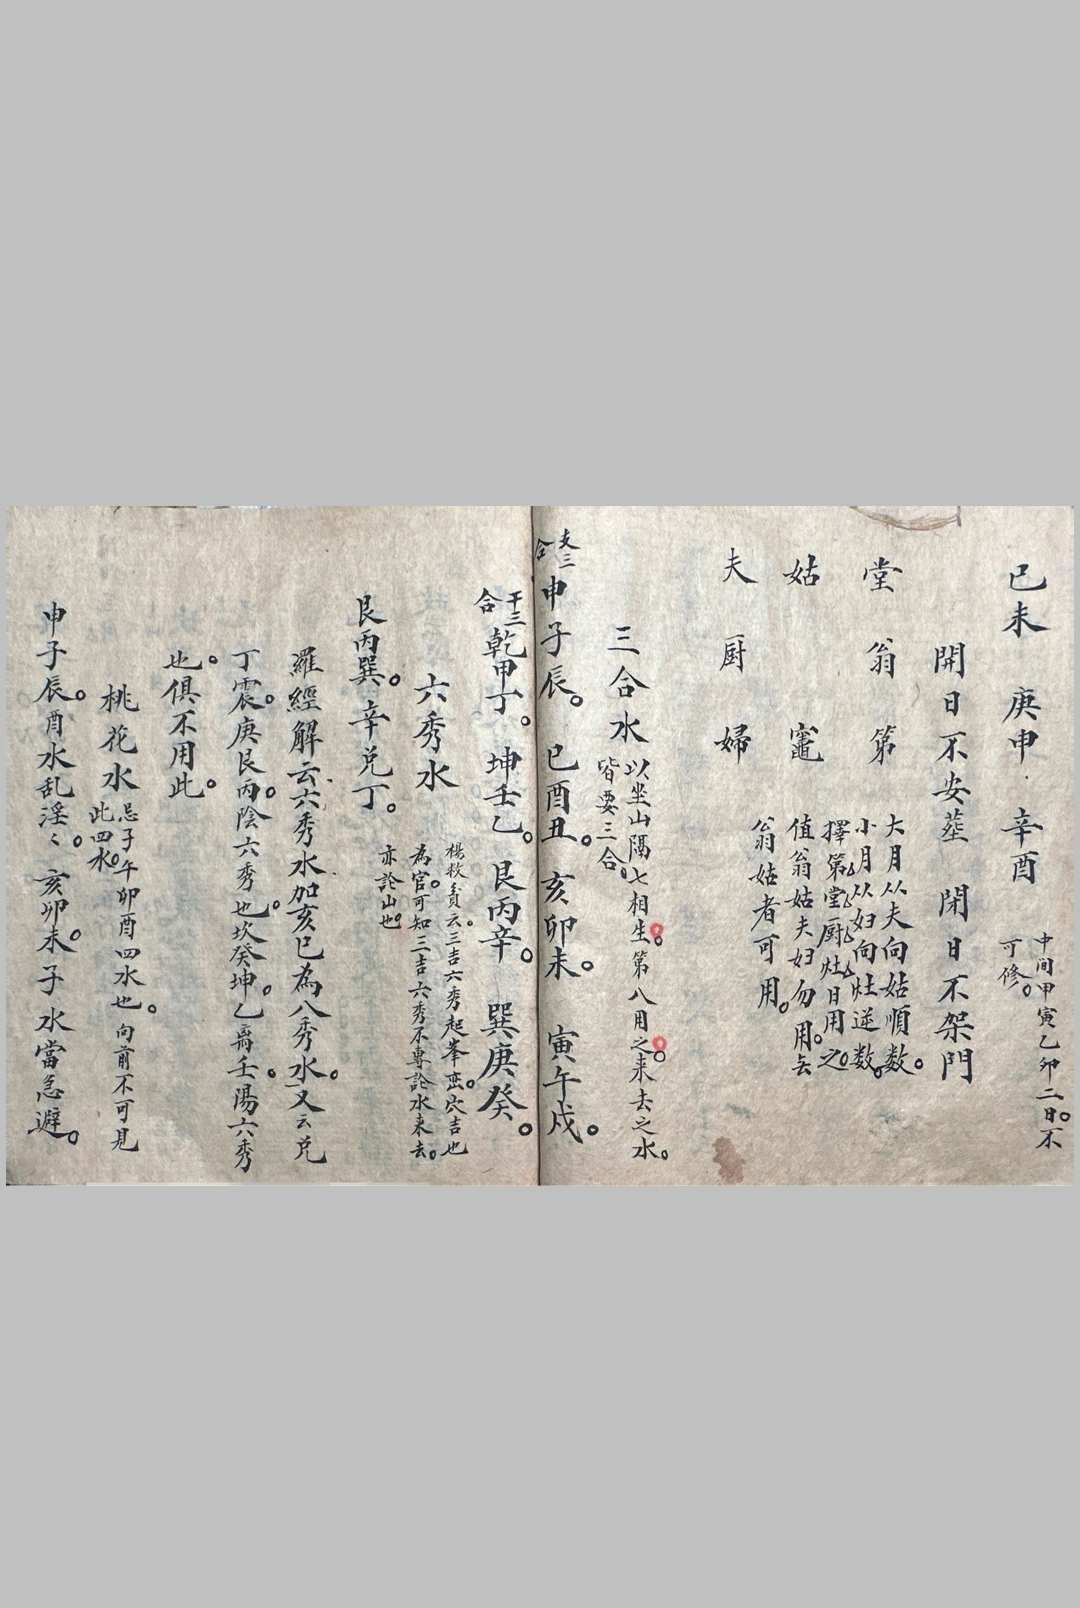 己未　庚申　辛酉
中间甲寅乙卯二日。不
可修。
開日不安葬　閉日不架門
堂　翁　第
姑　　　竈
夫　厨　婦
大月从夫向姑順数。
小月从妇向灶逆数。
擇第堂厨灶日用之。
值翁姑夫妇勿用。无
翁姑者可用。
三合水
以坐山隔七相生。第八用之。来去之水。
皆要三合。
支三
合
申子辰。巳酉丑。亥卯未。寅午戌。
干三
合
乾甲丁。坤壬乙。艮丙辛。巽庚癸。
六秀水
楊救貧云。三吉六秀起峯峦。穴吉也
為官可知三吉六秀不專論水来去。
亦論山也。
艮丙巽。辛兑丁。
羅經解云六秀水加亥巳為八秀水。又云兑
丁震。庚艮丙。陰六秀也。坎癸坤。乙离壬。陽六秀
也。俱不用此。
桃花水
忌子午卯酉四水也。向前不可見
此四水。
申子辰。酉水乱淫〻。亥卯未。子水當急避。